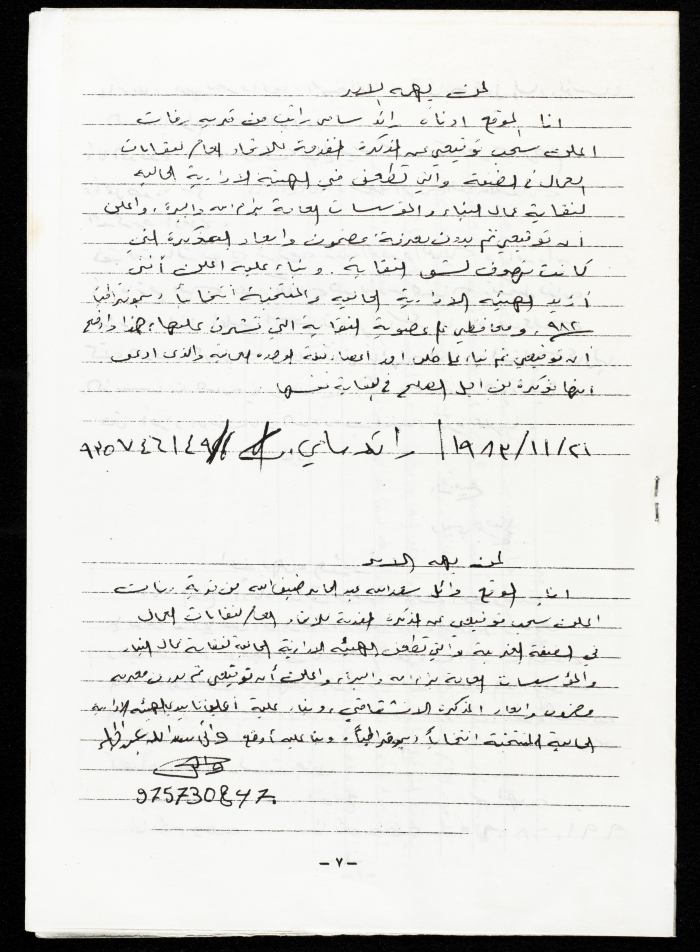 لمن يهمه الامر
انا الموقع ادناه رائد سامي راتب من قرية رفات
اعلن سحب توقيعي عن المذكرة المقدمة للاتحاد العام لنقابات
العمال في الضفة والتي تطعن في الهيئة الادارية الحالية
لنقابة عمال البناء والمؤسسات العامة بيرام الله والبيرة، واعلن
أن توقيعي تم بدون معرفة مضمون وابعاد المذكرة التي
كانت تهدف لشق النقابة. وبناء عليه اعلن أنني
أؤيد الهيئة الادارية الحالية والمنتخبة انتخاباً ديموقراطياً
٩٨٢، ومحافظتي على عضوية النقابة التي تشرف عليها، هذا واوضح
أن توقيعي تم بناء على طلب احد اعضاء الوحدة العمالية والذي ادعى
أنها مذكرة من اجل العلاج في النقابة نفسها.
١٩٨٣/١١/٢١ رائد سامي ٩٣٥٧٤٦١٤٩
لمن يهمه الامر
انا الموقع وائل سعد الله عبد الجابر ضيف الله من قرية رفات
اعلن سحب توقيعي عن المذكرة المقدمة للاتحاد العام لنقابات العمال
في الضفة الغربية والتي تطعن الهيئة الادارية الحالية لنقابة عمال البناء
والمؤسسات العامة بيرام الله والبيرة، واعلن أن توقيعي تم بدون معرفة
مضمون وابعاد المذكرة الانشقاقي، وبناء عليه أعلن تأييدي للهيئة الادارية
الحالية المنتخبة انتخاباً ديموقراطياً، وبناء عليه أوقع وائل سعد الله
975730847
- ٧ -